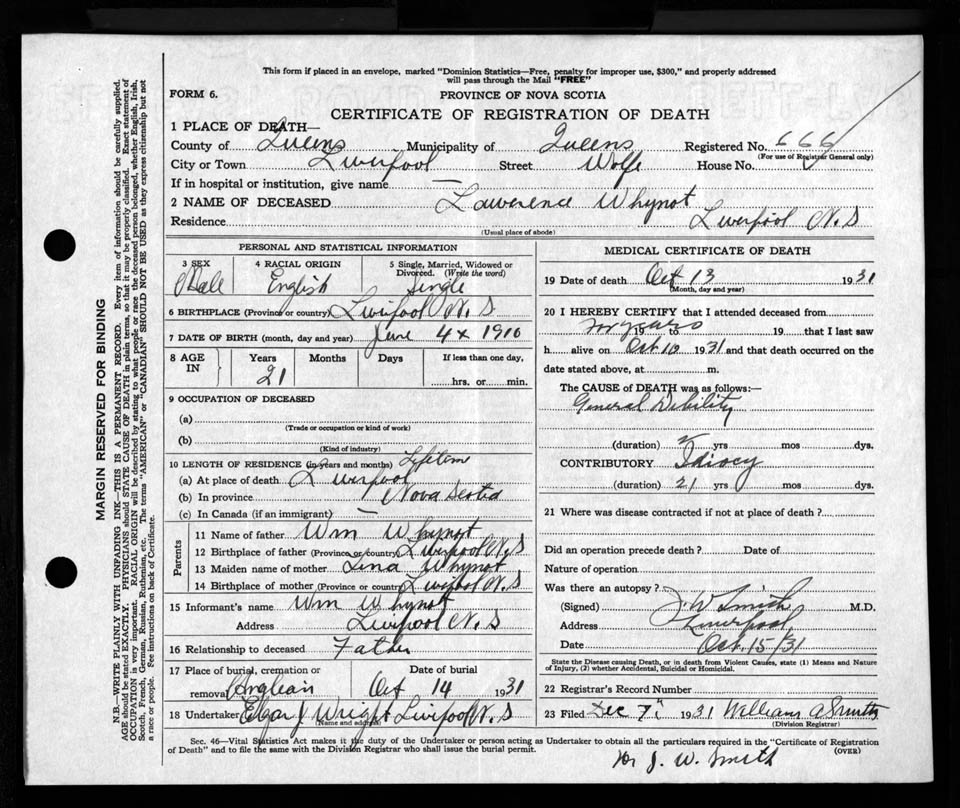 This form if placed in an envelope, marked "Dominion Statistics—Free, penalty for improper use, $300," and properly addressed
will pass through the Mail "FREE"
FORM 6.
PROVINCE OF NOVA SCOTIA
CERTIFICATE OF REGISTRATION OF DEATH
1 PLACE OF DEATH—
County of Queens Municipality of Queens Registered No. 666
(For use of Registrar General only)
City or Town Liverpool Street Wolfe House No.
If in hospital or institution, give name —
2 NAME OF DECEASED Lawerence Whynot
Residence Liverpool N.S
(Usual place of abode)
PERSONAL AND STATISTICAL INFORMATION
3 SEX Male
4 RACIAL ORIGIN English
5 Single, Married, Widowed or
Divorced. (Write the word)
Single
6 BIRTHPLACE (Province or country) Liverpool N.S
7 DATE OF BIRTH (month, day and year) June 4 x 1910
8 AGE IN
Years Months Days If less than one day,
21
hrs. or min.
9 OCCUPATION OF DECEASED
(a)
(Trade or occupation or kind of work)
(b)
(Kind of industry)
10 LENGTH OF RESIDENCE (in years and months) Lifetime
(a) At place of death Liverpool
(b) In province Nova Scotia
(c) In Canada (if an immigrant) —
Parents
11 Name of father Wm Whynot
12 Birthplace of father (Province or country) Liverpool N.S
13 Maiden name of mother Lina Whynot
14 Birthplace of mother (Province or country) Liverpool N.S
15 Informant's name Wm Whynot
Address Liverpool N.S
16 Relationship to deceased Father
17 Place of burial, cremation or Date of burial
removal Anglican Oct 14 1931
18 Undertaker Edgar J Wright Liverpool N.S
(Name and address)
MEDICAL CERTIFICATE OF DEATH
19 Date of death Oct 13 1931
(Month, day and year)
20 I HEREBY CERTIFY that I attended deceased from
for years 19 to 19 that I last saw
h alive on Oct. 10 1931 and that death occurred on the
date stated above, at m.
The CAUSE OF DEATH was as follows:—
General Debility
(duration) yrs mos dys.
CONTRIBUTORY Idiocy
(duration) 21 yrs mos dys.
21 Where was disease contracted if not at place of death?
Did an operation precede death? Date of
Nature of operation
Was there an autopsy?
(Signed) J W Smith M.D.
Address Liverpool
Date Oct. 15/31
State the Disease causing Death, or in death from Violent Causes, state (1) Means and Nature
of Injury, (2) whether Accidental, Suicidal or Homicidal.
22 Registrar's Record Number
23 Filed Dec 7" 1931 William A Smith
(Division Registrar)
Sec. 46—Vital Statistics Act makes it the duty of the Undertaker or person acting as Undertaker to obtain all the particulars required in the "Certificate of Registration
of Death" and to file the same with the Division Registrar who shall issue the burial permit.
(OVER)
J. W. Smith
MARGIN RESERVED FOR BINDING
N.B.—WRITE PLAINLY WITH UNFADING INK—THIS IS A PERMANENT RECORD. Every item of information should be carefully supplied.
AGE should be stated EXACTLY. PHYSICIANS should STATE CAUSE OF DEATH in plain terms, so that it may be properly classified. Exact statement of
OCCUPATION is very important. RACIAL ORIGIN will be described by stating to what people or race the deceased person belonged, whether English, Irish,
Scotch, French, German, Russian, Ruthenian, etc. The terms "AMERICAN" or "CANADIAN" SHOULD NOT BE USED as they express citizenship but not
a race or people. See instructions on back of Certificate.